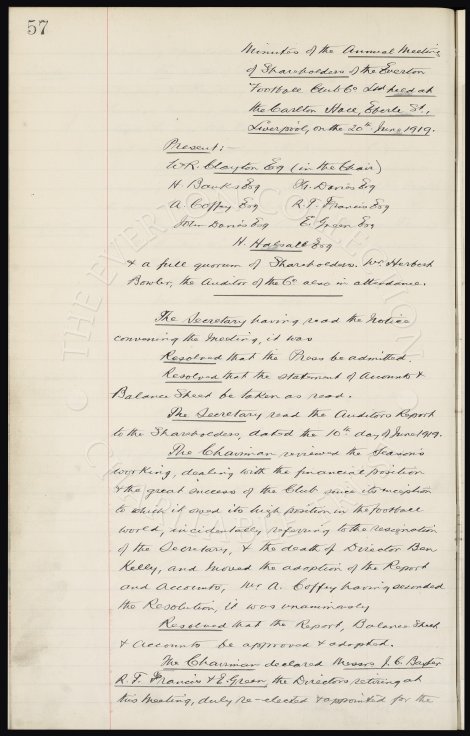 57
Minutes of the Annual Meeting
of Shareholders of the Everton
Football Club Co Ltd held at
the Carlton Hall, Eberle St.,
Liverpool, on the 20th June 1919.
Present:-
W.R. Clayton Esq (in the Chair)
H Banks Esq
A Coffey Esq D. Davies Esq
R.F. Francis Esq
John Davies Esq E. Green Esq
H. Halsall Esq
& a full quorum of Shareholders. Mr Herbert
Bowler, the Auditor of the Co also in attendance.
The Secretary having read the Notice
convening the Meeting, it was
Resolved that the Press be admitted.
Resolved that the statement of Accounts &
Balance Sheet be taken as read.
The Secretary read the Auditors Report
to the Shareholders, dated the 10th day of June 1919.
The Chairman reviewed the Season's
working, dealing with the financial position
& the great success of the Club since its inception
to which it owed its high position in the football
world, incidentally referring to the resignation
of the Secretary, & the death of Director Ben
Kelly, and moved the adoption of the Report
and Accounts, Mr A. Coffey having seconded
the Resolution, it was unanimously
Resolved that the Report, Balance Sheet
& Accounts be approved & adopted.
The Chairman declared Messrs J.C. Baxter
R.F. Francis & E. Green, the Directors retiring at
this Meeting, duly re-elected & appointed for the
THE EVERTON COLLECTION